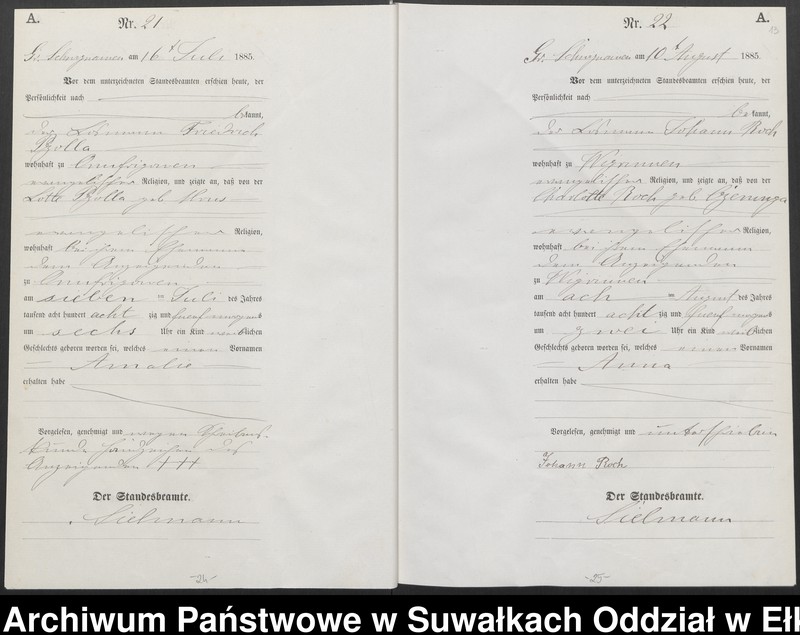 A.
Nr. 21
am 16t Juli 1885.
Vor dem unterzeichneten Standesbeamten erschien heute, der
Persönlichkeit nach
bekannt,
der Losmann Friedrich
wohnhaft zu Onufrigowen
evangelischer Religion, und zeigte an, daß von der
Lotte geb.
evangelischer Religion,
wohnhaft bei ihrem Ehemann
dem Anzeigenden
zu Onufrigowen
am sieben ten Juli des Jahres
tausend acht hundert acht zig und fuenf
um sechs Uhr ein Kind weiblichen
Geschlechts geboren worden sei, welches einen Vornamen
Amalie
erhalten habe
Vorgelesen, genehmigt und wegen Schreibens-
kunde Handzeichen des
Anzeigenden +++
Der Standesbeamte.
Sielmann
-24-
A.
Nr. 22
am 10t August 1885.
Vor dem unterzeichneten Standesbeamten erschien heute, der
Persönlichkeit nach
bekannt,
der Losmann Johann Roch
wohnhaft zu Wigrinnen
evangelischer Religion, und zeigte an, daß von der
Charlotte Roch geb.
evangelischer Religion,
wohnhaft bei ihrem Ehemann
dem Anzeigenden
zu Wigrinnen
am ach ten August des Jahres
tausend acht hundert acht zig und fuenf
um zwei Uhr ein Kind weiblichen
Geschlechts geboren worden sei, welches einen Vornamen
Anna
erhalten habe
Vorgelesen, genehmigt und unterschrieben
Johann Roch
Der Standesbeamte.
Sielmann
-25-
Archiwum Państwowe w Suwałkach Oddział w Ełk